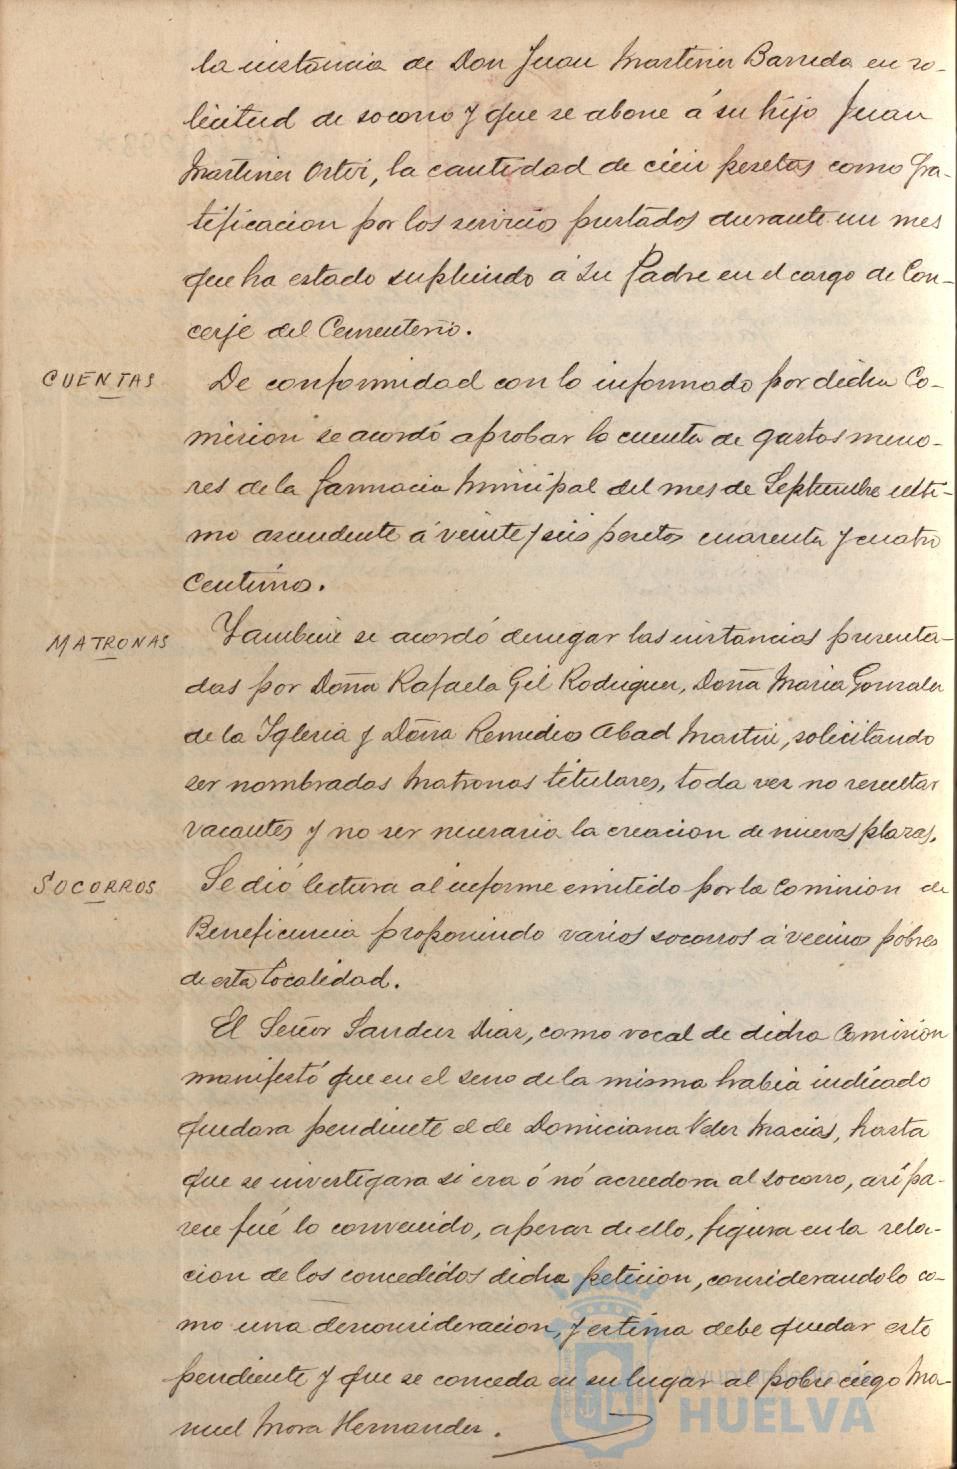 la instancia de Don Juan Martinez Barreda en so-
licitud de socorro y que se abone á su hijo Juan
Martinez Ortiz, la cantidad de cien pesetas como gra-
tificacion por los servicios prestados durante un mes
que ha estado supliendo á su Padre en el cargo de Con-
cerje del Cementerio.
CUENTAS
De conformidad con lo informado por dicha Co-
mision se acordó aprobar la cuenta de gastos meno-
res de la farmacia Municipal del mes de Septiembre ulti-
mo ascendente á veinte y seis pesetas cuarenta y cuatro
centimos.
MATRONAS
Tambien se acordó denegar las instancias presenta-
das por Doña Rafaela Gil Rodriguez, Doña Maria Gonzalez
de la Iglesia y Doña Remedios Abad Martin, solicitando
ser nombradas Matronas titulares, toda vez no resultar
vacantes y no ser necesaria la creacion de nuevas plazas.
SOCORROS
Se dió lectura al informe emitido por la Comision de
Beneficencia proponiendo varios socorros á vecinos pobres
de esta localidad.
El Señor Sanchez Diaz, como vocal de dicha Comision
manifestó que en el seno de la misma habia indicado
quedara pendiente el de Domiciana Velez Macias, hasta
que se investigara si era ó nó acreedora al socorro, así pa-
rece fué lo convenido, apesar de ello, figura en la rela-
cion de los concedidos dicha peticion, considerandolo co-
mo una desconsideracion, y estima debe quedar esto
pendiente y que se conceda en su lugar al pobre ciego Ma-
nuel Mora Hernandez.
Ayuntamiento de
HUELVA